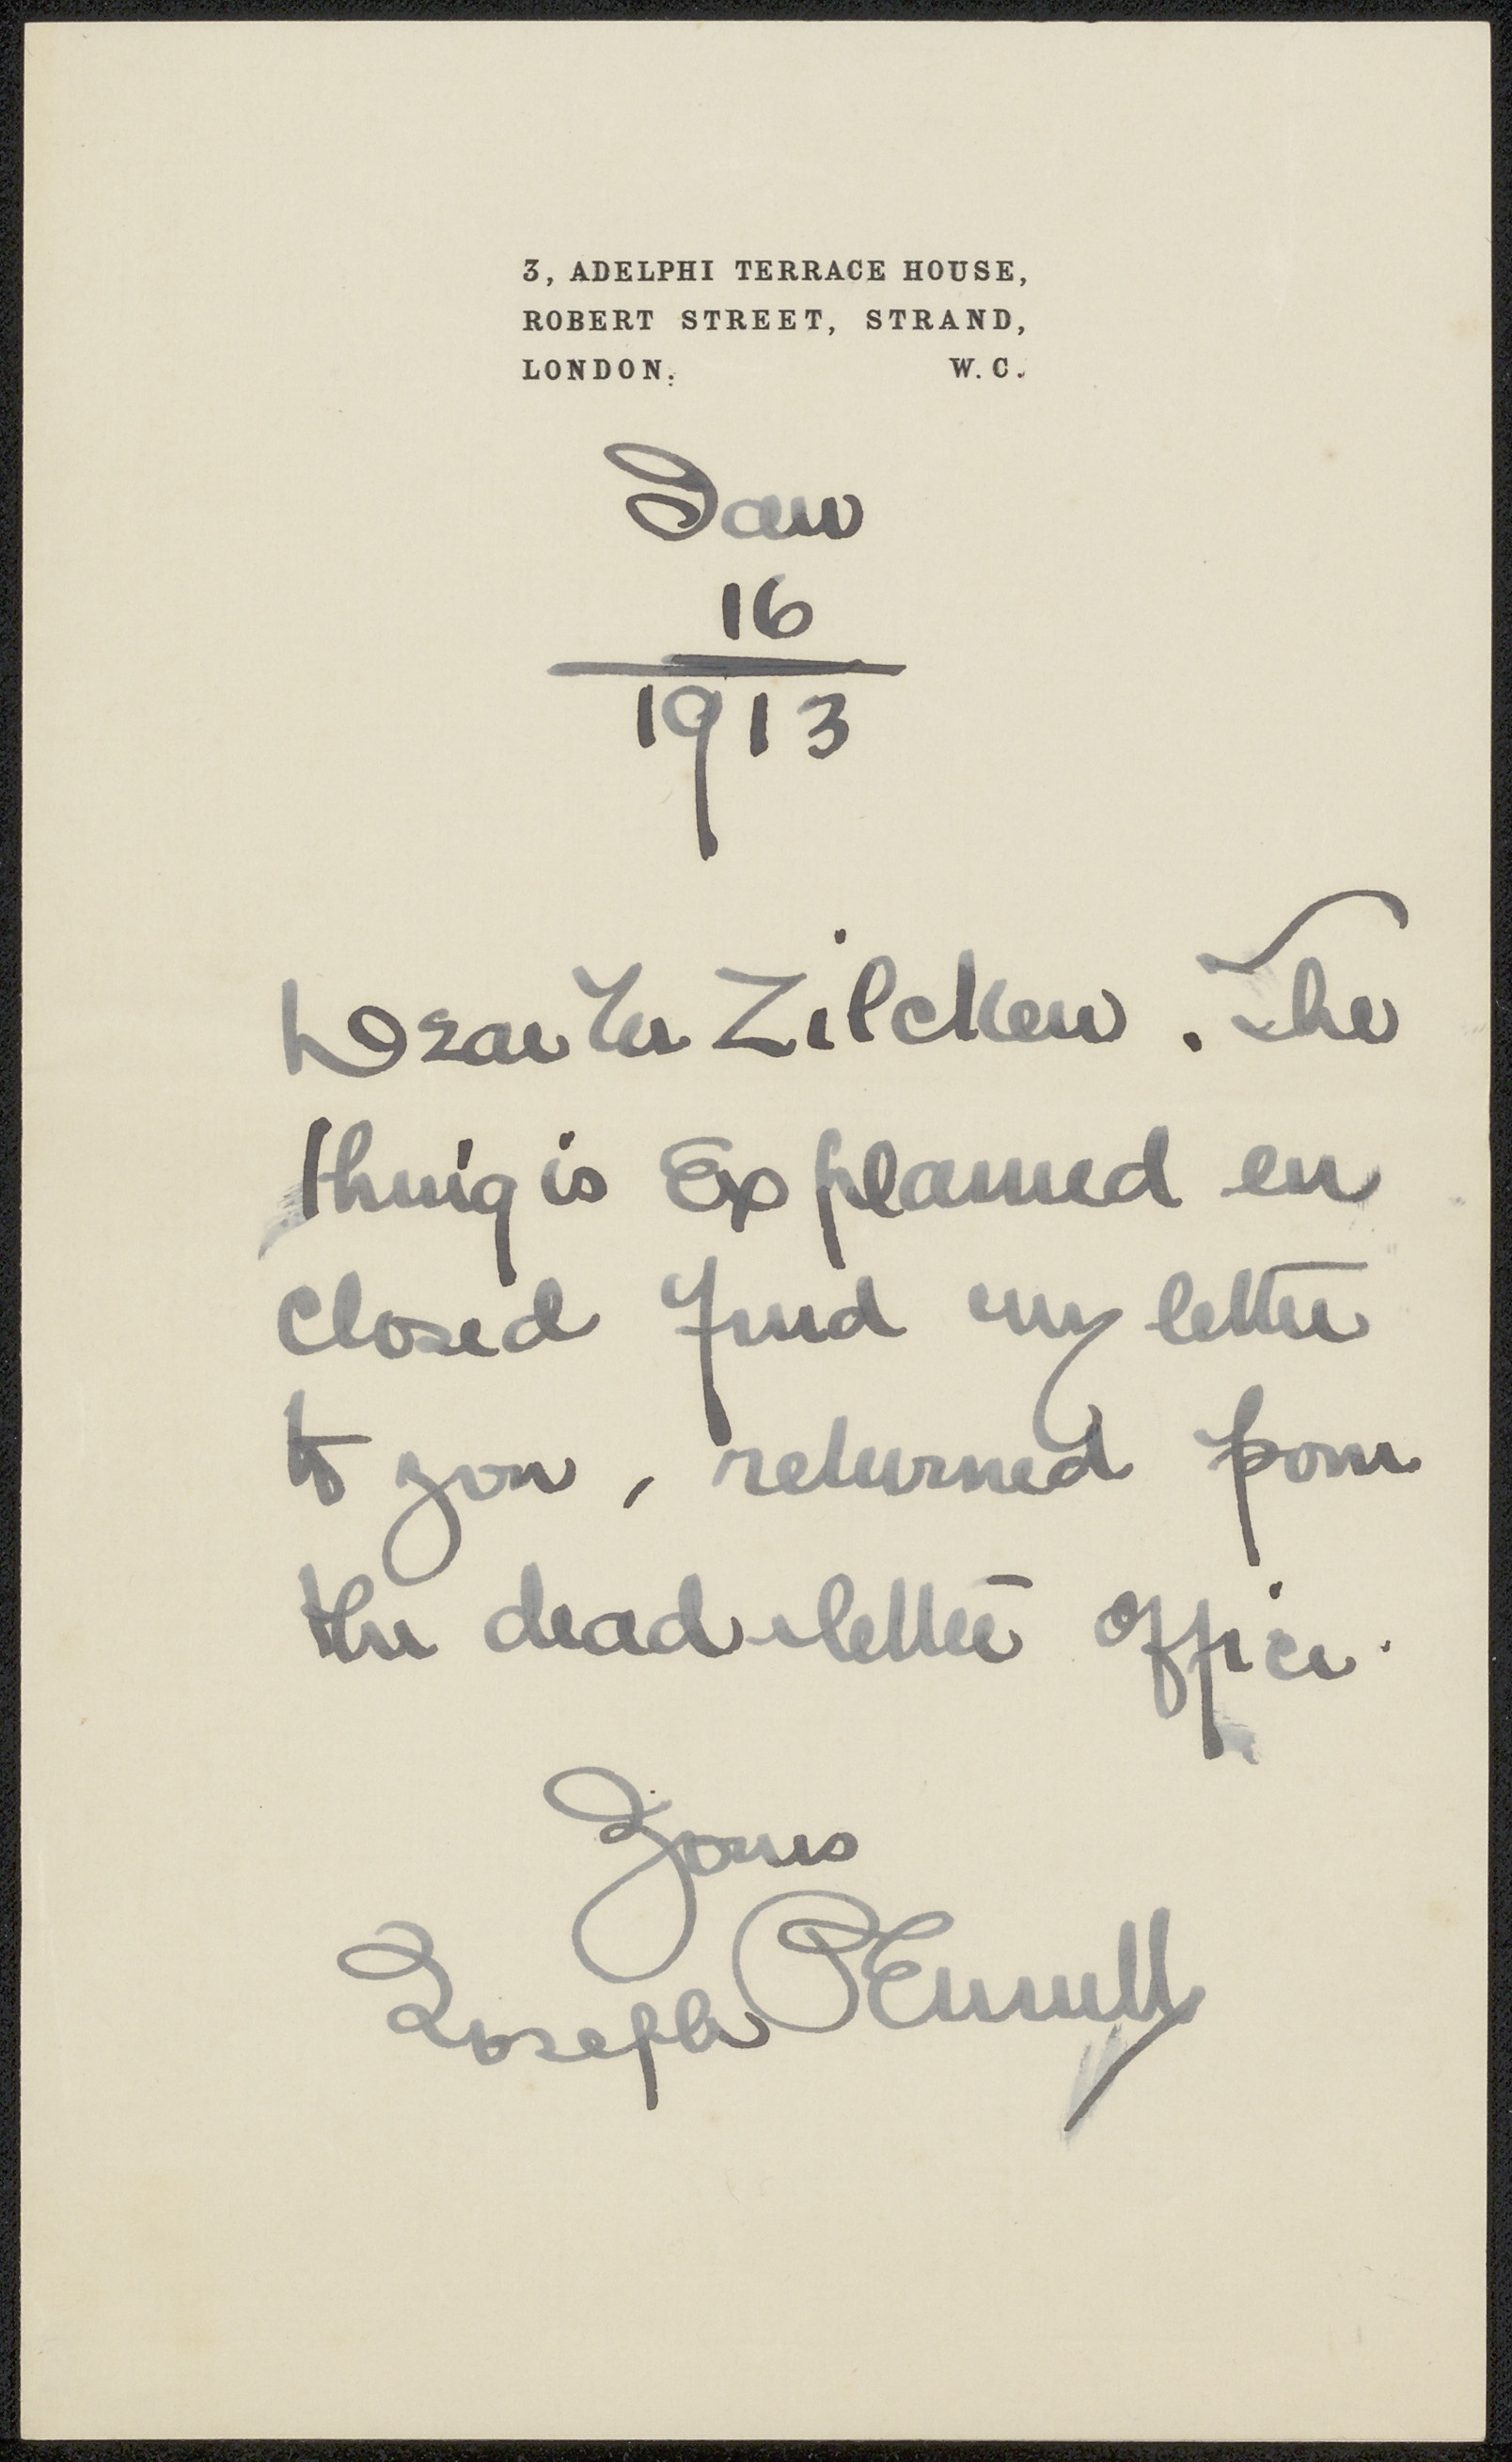 3, ADELPHI TERRACE HOUSE,
ROBERT STREET, STRAND,
LONDON. W.C.
Jan
16
1913
Dear Mr Zilcken. The
thing is Explained en
closed find my letter
to you, returned from
the dead letter office.
Yours
Joseph Pennell